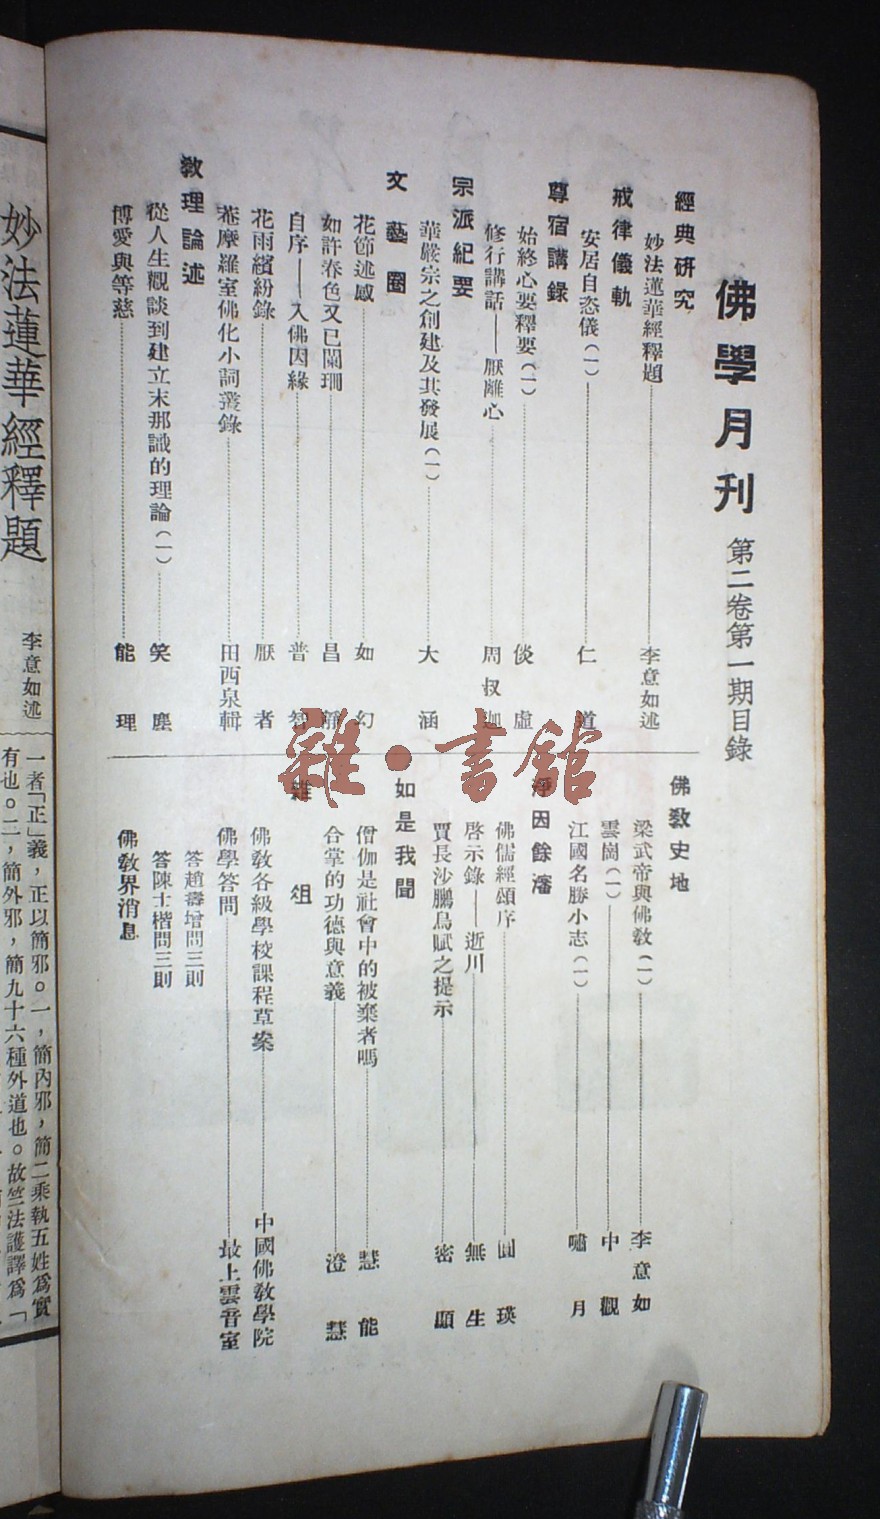 佛學月刊 第二卷第一期目錄
經典研究
妙法蓮華經釋題 李意如述
戒律儀軌
安居自恣儀(一) 仁道
尊宿講錄
始終心要釋要(一) 倓虛
修行講話——厭離心 周叔迦
宗派紀要
華嚴宗之創建及其發展(一) 大涵
文藝圈
花節述感 如幻
如許春色又已闌珊 昌靜
自序——入佛因緣 普智
花雨繽紛錄 厭者
菴摩羅室佛化小詞叢錄 田西泉輯
教理論述
從人生觀談到建立末那識的理論(一) 笑塵
博愛與等慈 能理
佛教史地
梁武帝與佛教(一) 李意如
雲崗(一) 中觀
江國名勝小志(一) 嘯月
淨因餘瀋
佛儒經頌序 圓瑛
啓示錄——逝川 無生
賈長沙鵬鳥賦之提示 密顯
如是我聞
僧伽是社會中的被棄者嗎 慧能
合掌的功德與意義 澄慧
雜俎
佛教各級學校課程草案 中國佛教學院
佛學答問 最上雲音室
答趙壽增問三則
答陳士楷問三則
佛教界消息
雜·書館
妙法蓮華經釋題
李意如述
一者「正」義,正以簡邪。一,簡內邪,簡二乘執五姓爲實
有也。二,簡外邪,簡九十六種外道也。故竺法護譯爲「